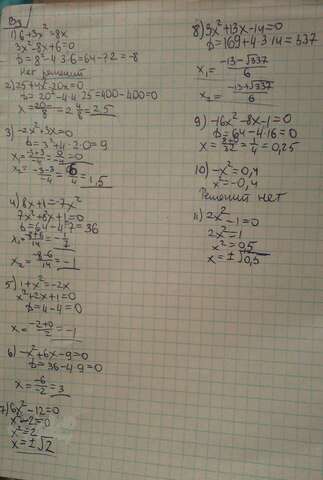 В3
1) 6+3x²=8x
3x²-8x+6=0
D=8²-4·3·6=64-72=-8
Нет решений
2) 25+4x²-20x=0
D=20²-4·4·25=400-400=0
x=20/8=2 4/8=2,5
3) -2x²+3x=0
D=3²+4·2·0=9
x₁=-3+3/-4=0/-4=0
x₂=-3-3/-4=6/4=1,5
4) 8x+1=-7x²
7x²+8x+1=0
D=64-4·7=36
x₁=-8+6/14=-1/7
x₂=-8-6/14=-1
5) 1+x²=-2x
x²+2x+1=0
D=4-4=0
x=-2+0/2=-1
6) -x²+6x-9=0
D=36-4·9=0
x=-6/-2=3
7) 6x²-12=0
x²-2=0
x²=2
x=±√2
8) 3x²+13x-14=0
D=169+4·3·14=337
x₁=-13-√337/6
x₂=-13+√337/6
9) -16x²-8x-1=0
D=64-4·16=0
x=8+0/32=1/4=0,25
10) -x²=0,4
x²=-0,4
Решений нет
11) 2x²-1=0
2x²=1
x²=0,5
x=±√0,5